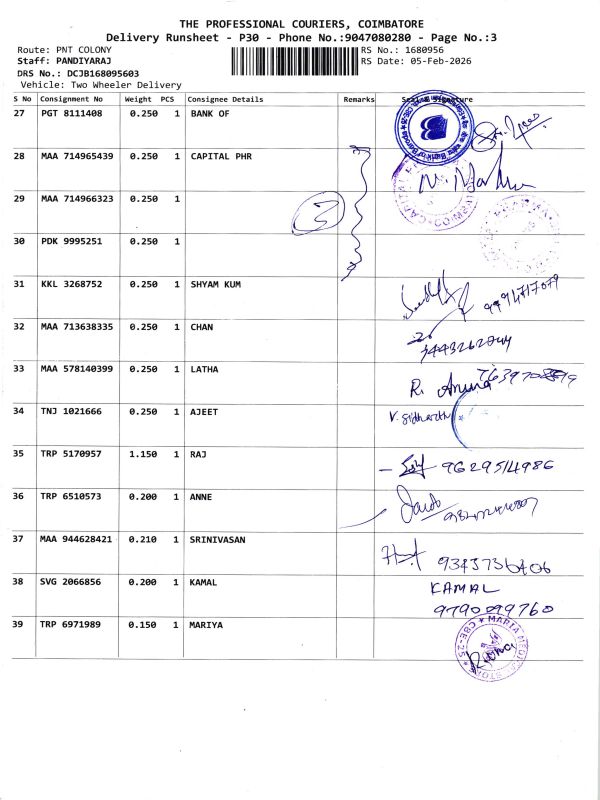 THE PROFESSIONAL COURIERS, COIMBATORE
Delivery Runsheet - P30 - Phone No.:9047080280 - Page No.:3
Route: PNT COLONY RS No.: 1680956
Staff: PANDIYARAJ RS Date: 05-Feb-2026
DRS No.: DCJB168095603
Vehicle: Two Wheeler Delivery
S No Consignment No Weight PCS Consignee Details Remarks Signature
27 PGT 8111408 0.250 1 BANK OF
28 MAA 714965439 0.250 1 CAPITAL PHR
29 MAA 714966323 0.250 1
30 PDK 9995251 0.250 1
31 KKL 3268752 0.250 1 SHYAM KUM
32 MAA 713638335 0.250 1 CHAN
33 MAA 578140399 0.250 1 LATHA R.
34 TNJ 1021666 0.250 1 AJEET V. Sidharth
35 TRP 5170957 1.150 1 RAJ 9629514986
36 TRP 6510573 0.200 1 ANNE
37 MAA 944628421 0.210 1 SRINIVASAN
38 SVG 2066856 0.200 1 KAMAL KAMAL
9790099760
39 TRP 6971989 0.150 1 MARIYA
CBE-25 * MARIA MEDICAL STORE